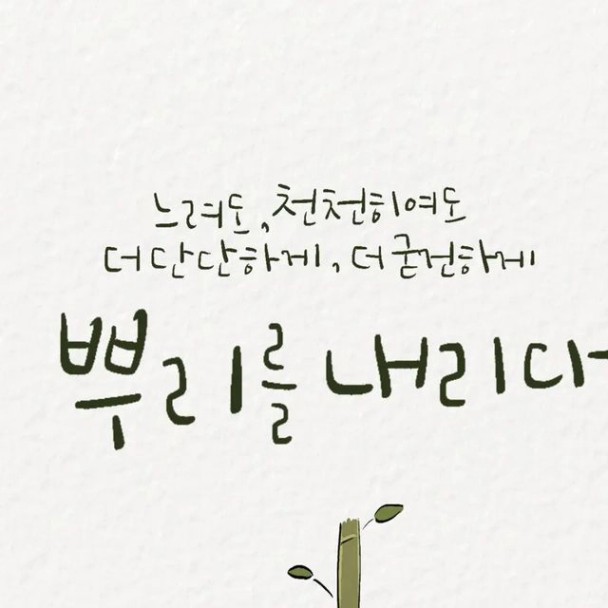 느려도, 천천히여도
더 단단하게, 더 굳건하게
뿌리를 내리다